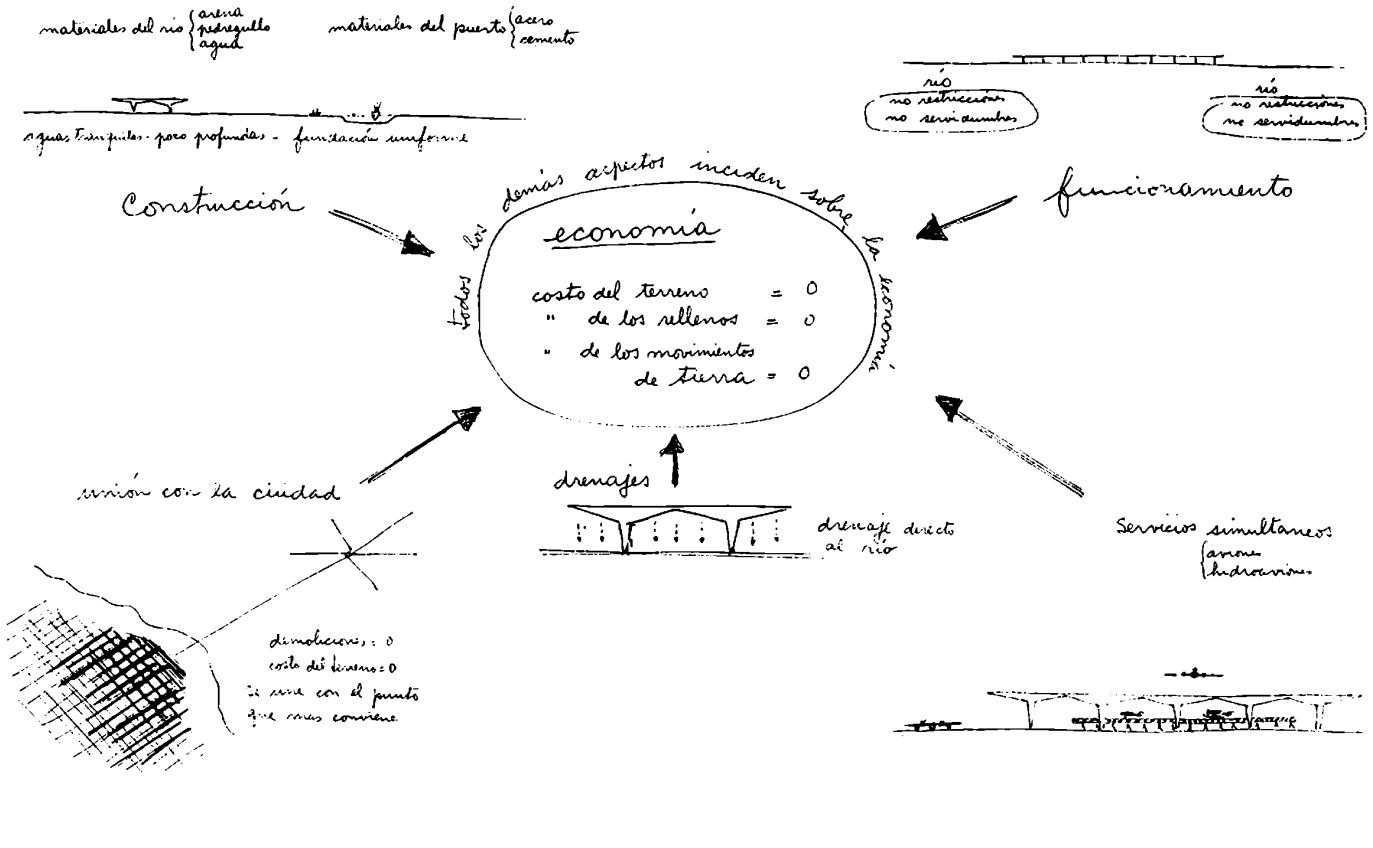 materiales del río { arena
pedregullo
agua
materiales del puerto { acero
cemento
aguas tranquilas - poco profundas - fundación uniforme
río
no restricciones
no servidumbres
río
no restricciones
no servidumbres
Construcción
funcionamiento
todos los demás aspectos inciden sobre la economía
economía
costo del terreno = 0
" de los rellenos = 0
" de los movimientos
de tierra = 0
unión con la ciudad
drenajes
drenaje directo
al río
Servicios simultaneos
{ aviones
hidroaviones
demoliciones: 0
costo del terreno = 0
se une con el punto
que mas conviene